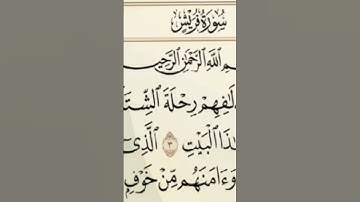 سُورَةُ قُرَيْشٍ
ٱللَّهِ ٱلرَّحْمَٰنِ ٱلرَّحِيـ
ـلَٰفِهِمْ رِحْلَةَ ٱلشِّتَا
ـذَا ٱلْبَيْتِ ٣ ٱلَّذِىٓ
وَءَامَنَهُم مِّنْ خَوْفٍ